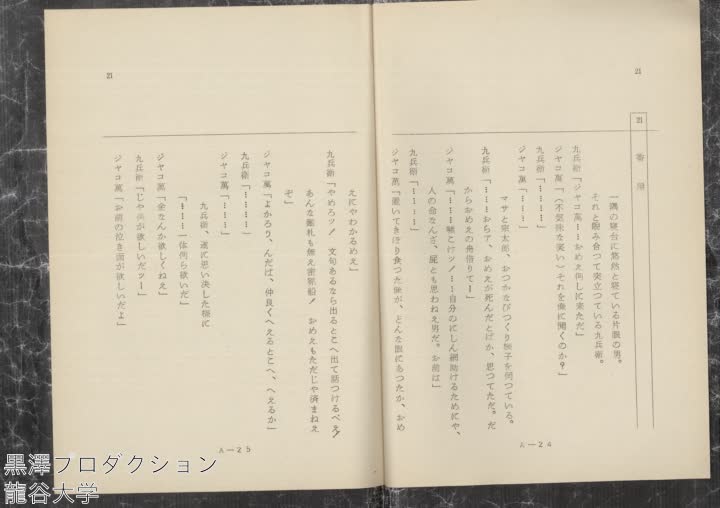 21
21
番屋
一隅の寝台に悠然と寝ている片眼の男。
それと睨み合つて突立つている九兵衛。
九兵衛「ジャコ萬――おめえ何しに来ただ」
ジャコ萬「（不気味な笑い）それを俺に聞くのか？」
九兵衛「…………」
ジャコ萬「…………」
マサと宗太郎、おつかなびつくり様子を伺つている。
九兵衛「……おらア、おめえが死んだとばか、思つてただ。だ
からおめえの舟借りて――」
ジャコ萬「……嘘こけッ！――自分のにしん網助けるためにや、
人の命なんざ、屁とも思わねえ男だ。お前は」
九兵衛「…………」
ジャコ萬「置いてきぼり食つた俺が、どんな眼にあつたか、おめ
A－24
21
えにやわかるめえ」
九兵衛「やめろッ！ 文句あるなら出るとこへ出て話つけるべえ！
あんな鑑札も無え密漁船！ おめえもただじや済まねえ
ぞ」
ジャコ萬「よかろう、んだば、仲良くへえるとこへ、へえるか」
九兵衛「…………」
ジャコ萬「………」
九兵衛、遂に思い決した様に
「………一体何ら欲いだ」
ジャコ萬「金なんか欲しくねえ」
九兵衛「じや何が欲しいだッ――」
ジャコ萬「お前の泣き面が欲しいだよ」
A－25
黒澤プロダクション
龍谷大学